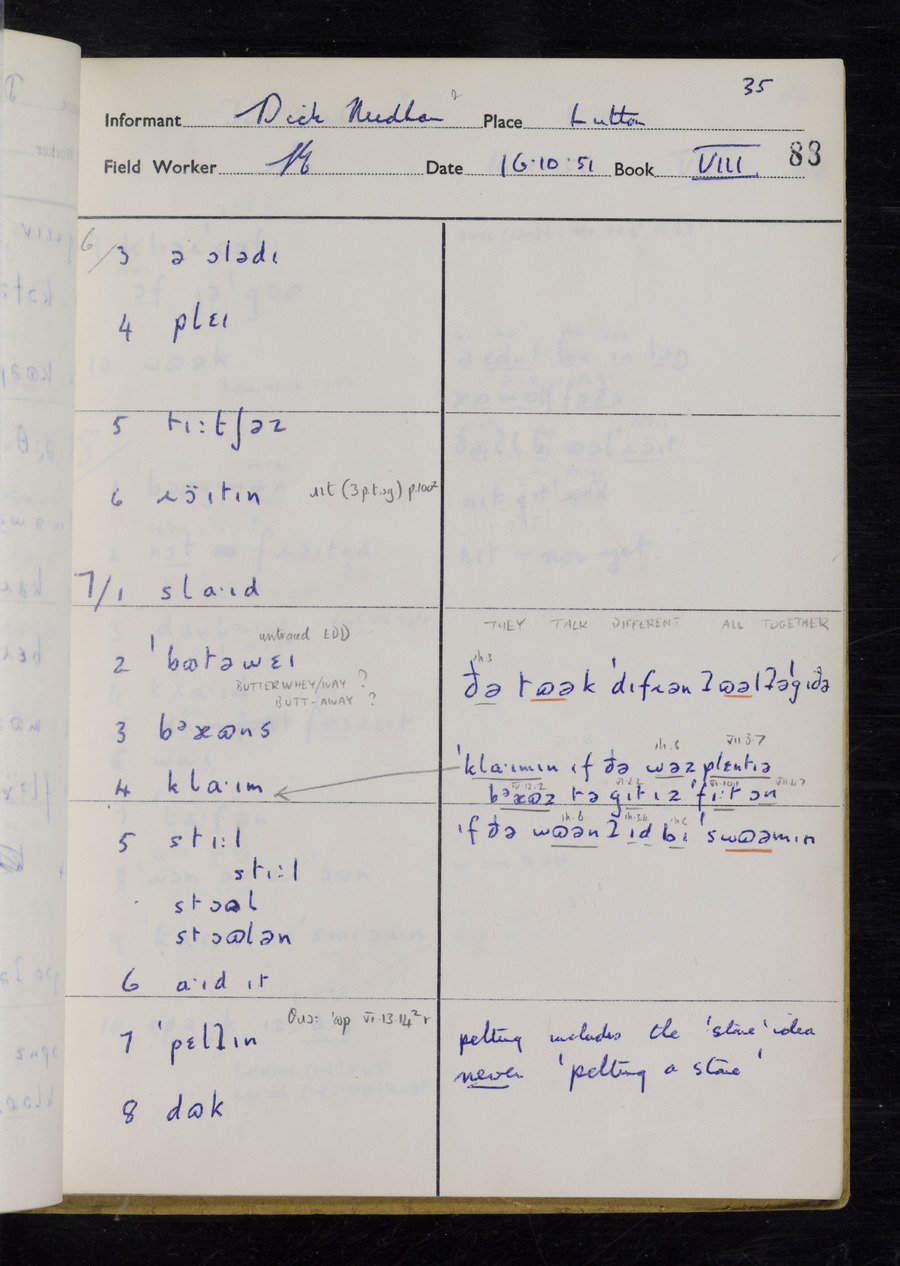 35
Informant Dick Needham ² Place Lutton
Field Worker Date 16·10·51 Book VIII 83
6/3 ə ɔlədɪ
4 plɛɪ
5 tɪ:tʃəz
6 ɹɔ̈ɪtɪn ɹɪt (3 p.t.sg) p.100²
7/1 sla·ɪd
untraced EDD
2 ˈbɷtəwɛɪ
BUTTERWHEY/WAY ?
BUTT-AWAY ?
3 bᵊxɷns
4 kla·ɪm
5 sti:l
stɪ:l
stɔəl
stɔɷlən
6 a·ɪd ɪt
7 ˈpɛlʔɪn
8 dɷk
THEY TALK DIFFERENT ALL TOGETHER
ih 3
ðə tɷək ˈdɪfɹən ʔɷəlʔəˈgɪðə
ih. 6 VII·8·7
ˈkla·ɪmɪn ɪf ðə wəz plɛntɪə
bᵊxɷz tə gɪt ɪz ˈfi:t ɒn
ih. 6 ih. 3.6 ih 6
ɪf ðə wɷənʔ ɪd bi ˈswɷəmɪn
pelting includes the 'stone' idea
never 'pelting a stone'